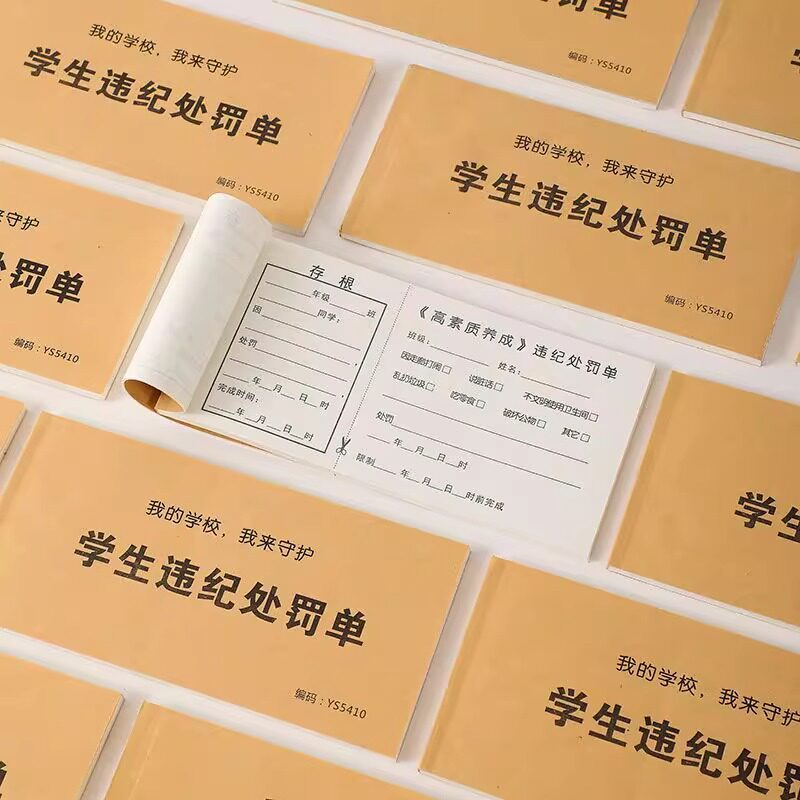 我的学校，我来守护
学生违纪处罚单
编码：YS5410
编码：YS5410
我的学校，我来守护
学生违纪处罚单
编码：YS5410
来守护
处罚单
编码：YS5410
存根
年级 班
因 同学：
处罚 ，
年 月 日 时
完成时间：
年 月 日 时
《高素质养成》违纪处罚单
班级： 姓名：
因走廊打闹□ 讲脏话□ 不文明使用卫生间□
乱扔垃圾□ 吃零食□ 破坏公物□ 其它□
处罚
年 月 日 时
限制 年 月 日 时前完成
我的学校，我来守护
学生违纪处罚单
编码：YS5410
学生
我的学校，我来守护
学生违纪处罚单
单